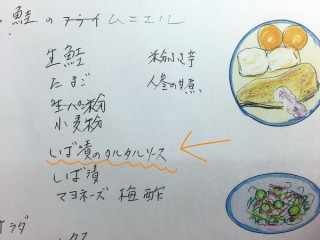 鮭のフライムニエル
生鮭 粉ふき芋
たまご 人参の甘煮、
生パン粉
小麦粉
しば漬のタルタルソース
しば漬
マヨネーズ 梅酢
サラダ